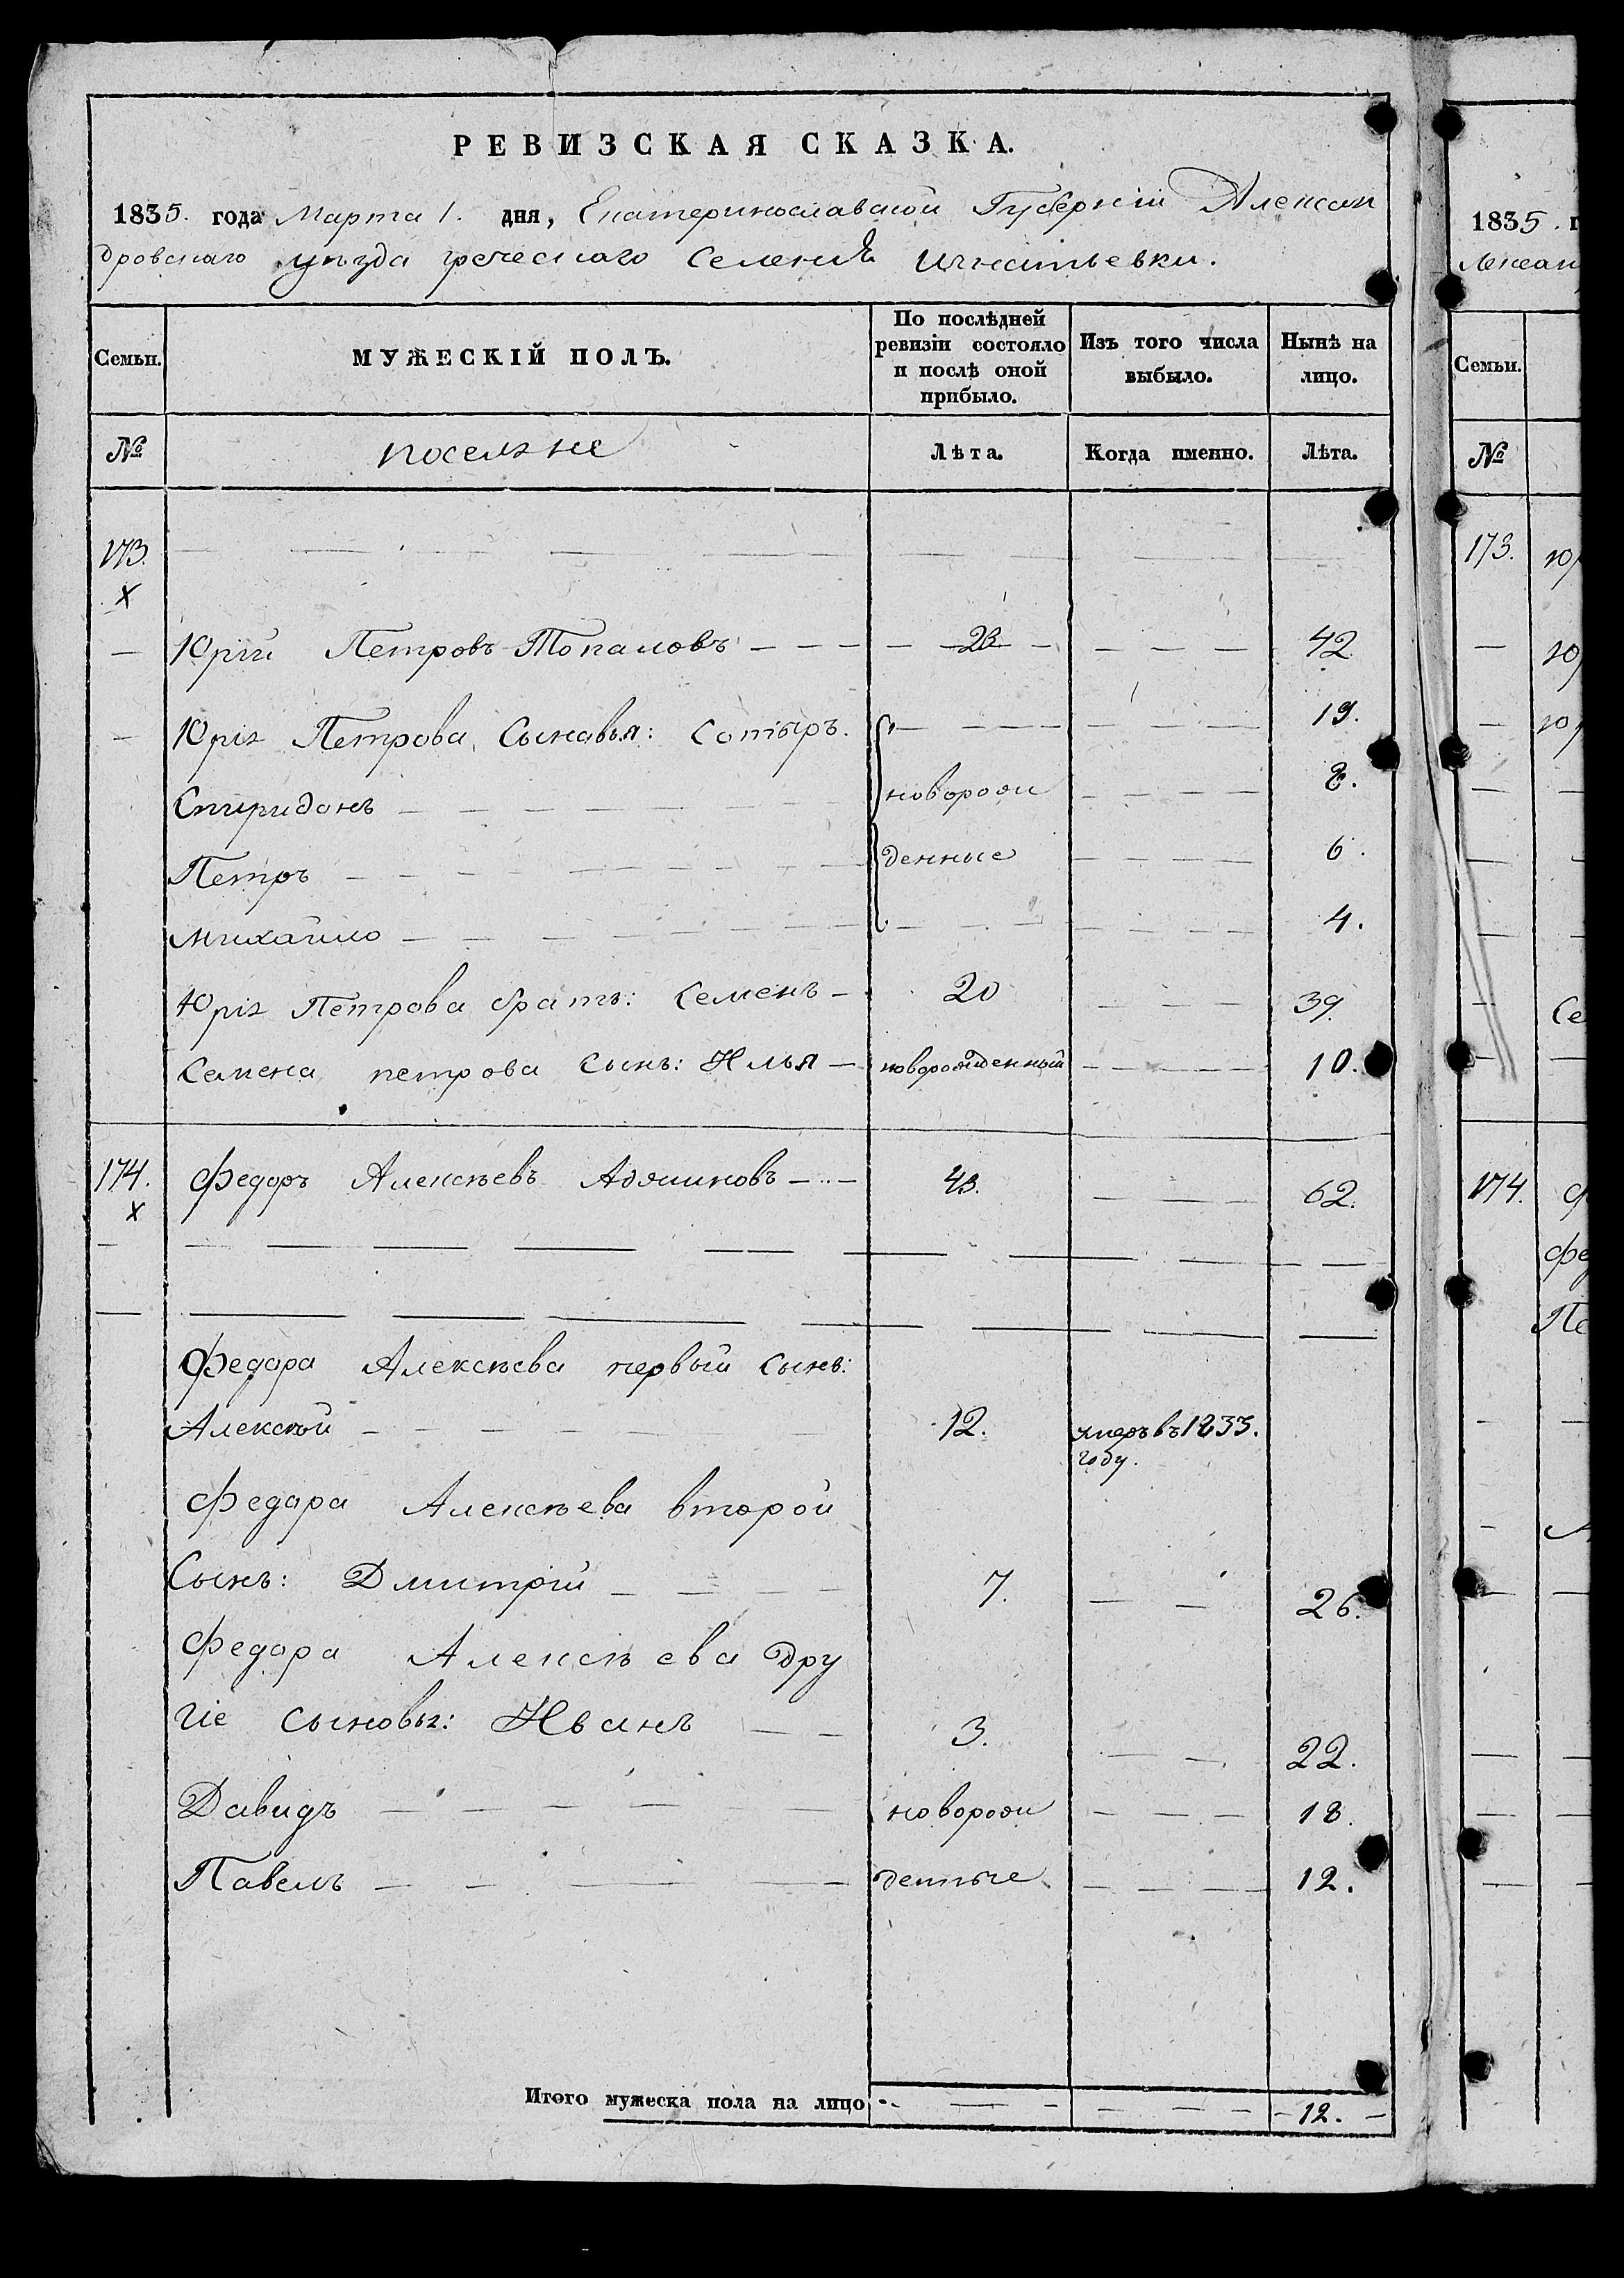 РЕВИЗСКАЯ СКАЗКА.
1835. года Марта 1. дня, Екатеринославской Губернiи Алексан
дровскаго уѣзда греческаго Селенiя Игнатьевки.
Семьи. МУЖЕСКIЙ ПОЛЪ. По послѣдней ревизiи состояло и послѣ оной прибыло. Изъ того числа выбыло. Нынѣ на лицо.
№ поселяне Лѣта. Когда именно. Лѣта.
173.
х
Юрiй Петровъ Топаловъ 23 42
Юрiя Петрова Сыновья: Сотыръ. 19.
Спиридонъ новорож 8.
Петръ денные 6.
Михайло 4.
Юрiя Петрова братъ: Семенъ 20 39.
Семена петрова Сынъ: Илья новорожденный 10.
174. Федоръ Алексѣевъ 43. 62.
х
Федора Алексѣева первый Сынъ:
Алексѣй 12. умеръ въ 1833.
году.
Федора Алексѣева второй
Сынъ: Дмитрiй 7. 26.
Федора Алексѣева дру
гiе сыновья: Иванъ 3. 22.
Давидъ новорож 18.
Павелъ денные 12.
Итого мужеска пола на лицо 12.
1835. г
Семьи.
№
173. Юр
Юр
Юр
Се
174. Ф
Фед
Пе